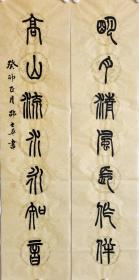 明月清風長作伴
高山流水永知音
癸卯 月 書